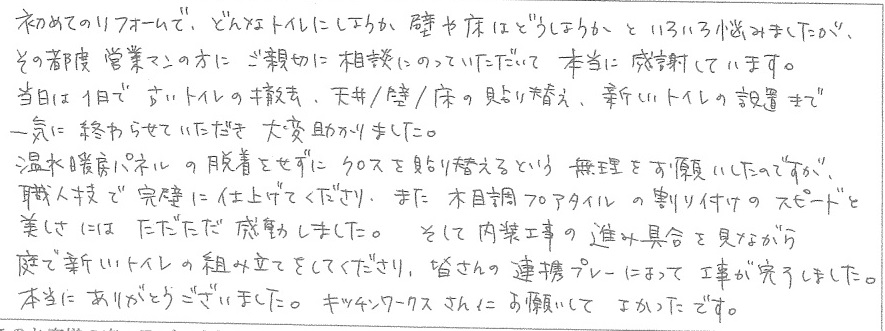 初めてのリフォームで、どんなトイレにしようか 壁や床はどうしようか といろいろ悩みましたが、
その都度 営業マンの方に ご親切に 相談にのっていただいて 本当に 感謝しています。
当日は 1日で 古いトイレの撤去、天井/壁/床の貼り替え、新しいトイレの設置まで
一気に 終わらせていただき 大変助かりました。
温水暖房パネルの脱着をせずに クロスを貼り替えるという 無理をお願いしたのですが、
職人技で 完璧に仕上げてくださり、また 木目調フロアタイルの割り付けのスピードと
美しさには ただただ 感動しました。 そして 内装工事の進み具合を見ながら
庭で新しいトイレの組み立てをしてくださり、皆さんの連携プレーによって 工事が完了しました。
本当に ありがとうございました。 キッチンワークスさんに お願いして よかったです。